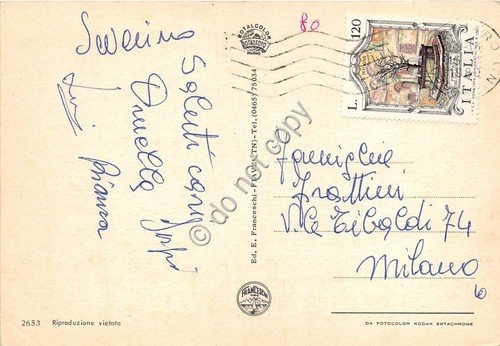 Severino
Saluti cari
Ornella
Luui
Bianca
ROTALCOLOR
80
L. 120
ITALIA
Ed. E. Franceschi - (TN) - Tel. (0465) 75034
do not copy
Famiglia
Frattini
V.le Tibaldi 74
Milano
6
FRANCESCHI
2653 Riproduzione vietata
DA FOTOCOLOR KODAK EKTACHROME